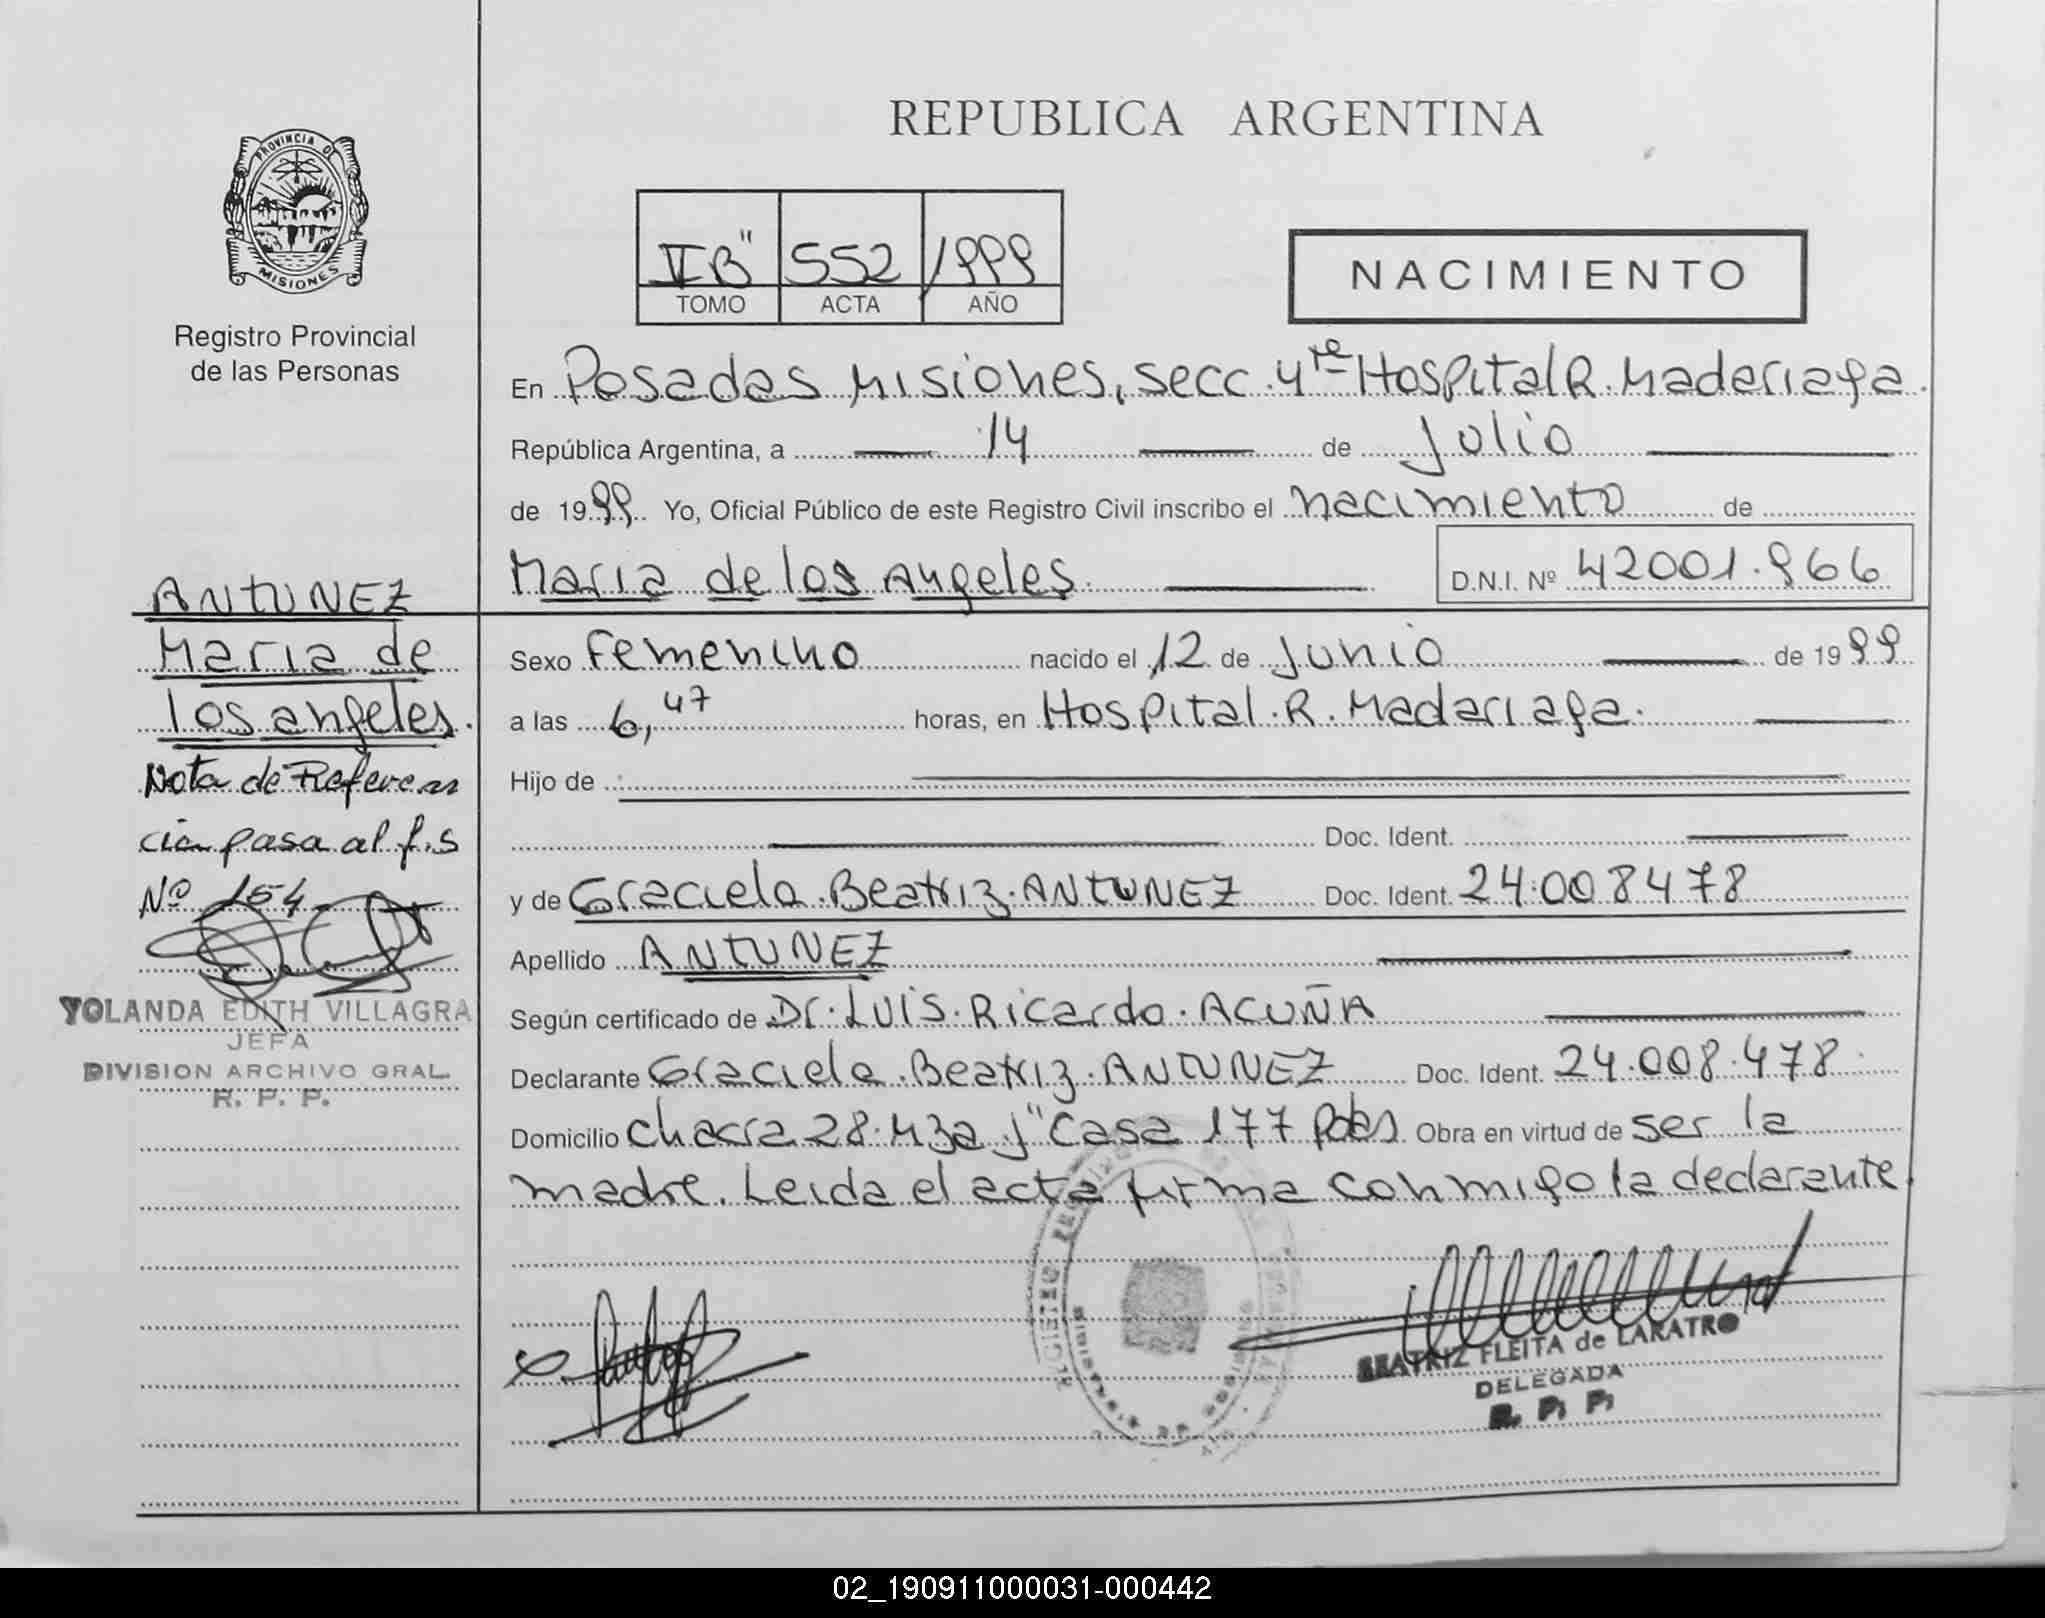 REPUBLICA ARGENTINA
PROVINCIA DE
MISIONES
Registro Provincial
de las Personas
VB" 552 1999
TOMO ACTA AÑO
NACIMIENTO
En Posadas Misiones, secc. 4ta Hospital R. Madariaga.
República Argentina, a 14 de Julio
de 1999 Yo, Oficial Público de este Registro Civil inscribo el nacimiento de
Maria de los Angeles. D.N.I. Nº 42001.966
ANTUNEZ
Maria de
los angeles.
Nota de Referen
cia pasa al f.s
Nº 154
YOLANDA EDITH VILLAGRA
JEFA
DIVISION ARCHIVO GRAL.
R. P. P.
Sexo Femenino nacido el 12 de Junio de 1999
a las 6,47 horas, en Hospital R. Madariaga.
Hijo de
Doc. Ident.
y de Graciela Beatriz ANTUNEZ Doc. Ident. 24.008478
Apellido ANTUNEZ
Según certificado de Dr. Luis Ricardo ACUÑA
Declarante Graciela Beatriz ANTUNEZ Doc. Ident. 24.008.478
Domicilio Chacra 28. M3a J" Casa 177 Pdas Obra en virtud de ser la
madre. Leida el acta firma conmigo la declarante.
BEATRIZ FLEITA de LARATRO
DELEGADA
R. P. P.
02_190911000031-000442